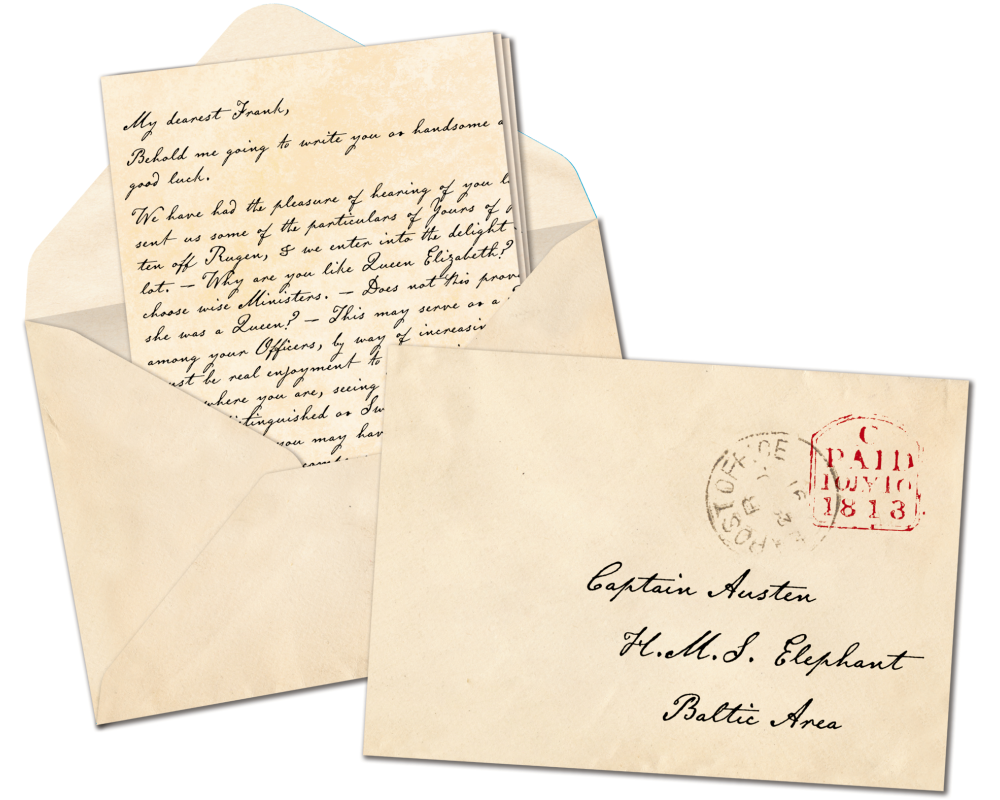 My dearest Frank,
Behold me going to write you as handsome a
good luck.
We have had the pleasure of hearing of you l
sent us some of the particulars of Yours of
ten off Rugen, & we enter into the delight
lot. — Why are you like Queen Elizabeth?
choose wise Ministers. — Does not this prov
she was a Queen? — This may serve as a
among your Officers, by way of increasin
ust be real enjoyment to
where you are, seeing
istinguished as Sw
you may hav
POST OFFICE
C
PAID
10JY10
1813
Captain Austen
H.M.S. Elephant
Baltic Area